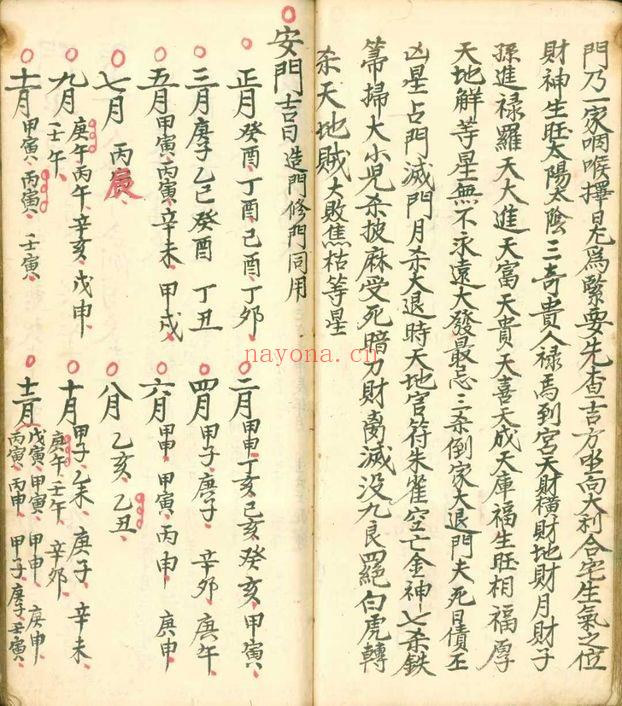 門乃一家咽喉擇日尤爲緊要先查吉方坐向大利合宅生氣之位
財神生旺太陽太陰三奇貴人禄馬到宮天財橫財地財月財子
孫進禄羅天大進天富天貴天喜天成天庫福生旺相福厚
天地解等星無不永遠大發最忌三煞倒家大退門夫死日債丕
凶星占門滅門月杀大退時天地官符朱雀空亡金神七杀鉄
箒掃大小児杀披麻受死暗刀財离滅没九良四絕白虎轉
杀天地賊大敗焦枯等星
安門吉日造門修門同用
正月癸酉丁酉己酉丁卯
二月甲申丁亥己亥癸亥甲寅
三月庚子乙巳癸酉丁丑
四月甲子庚子辛卯庚午
五月甲寅丙寅辛未甲戌
六月甲申甲寅丙申庚申
七月丙辰
八月乙亥乙丑
九月庚午丙午辛亥戊申
壬午
十月甲子乙未庚子辛未
庚午壬午辛卯
十一月甲寅丙寅壬寅
十二月戊寅甲寅甲申庚申
丙寅丙申甲子庚子壬寅
nayona.cn